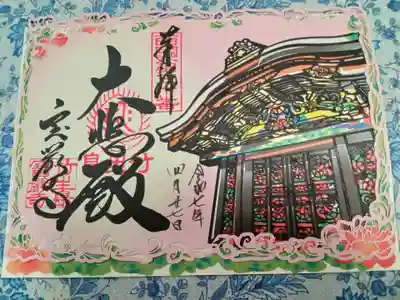 奉拝
大悲殿
宝厳寺
令和七年
四月廿七日